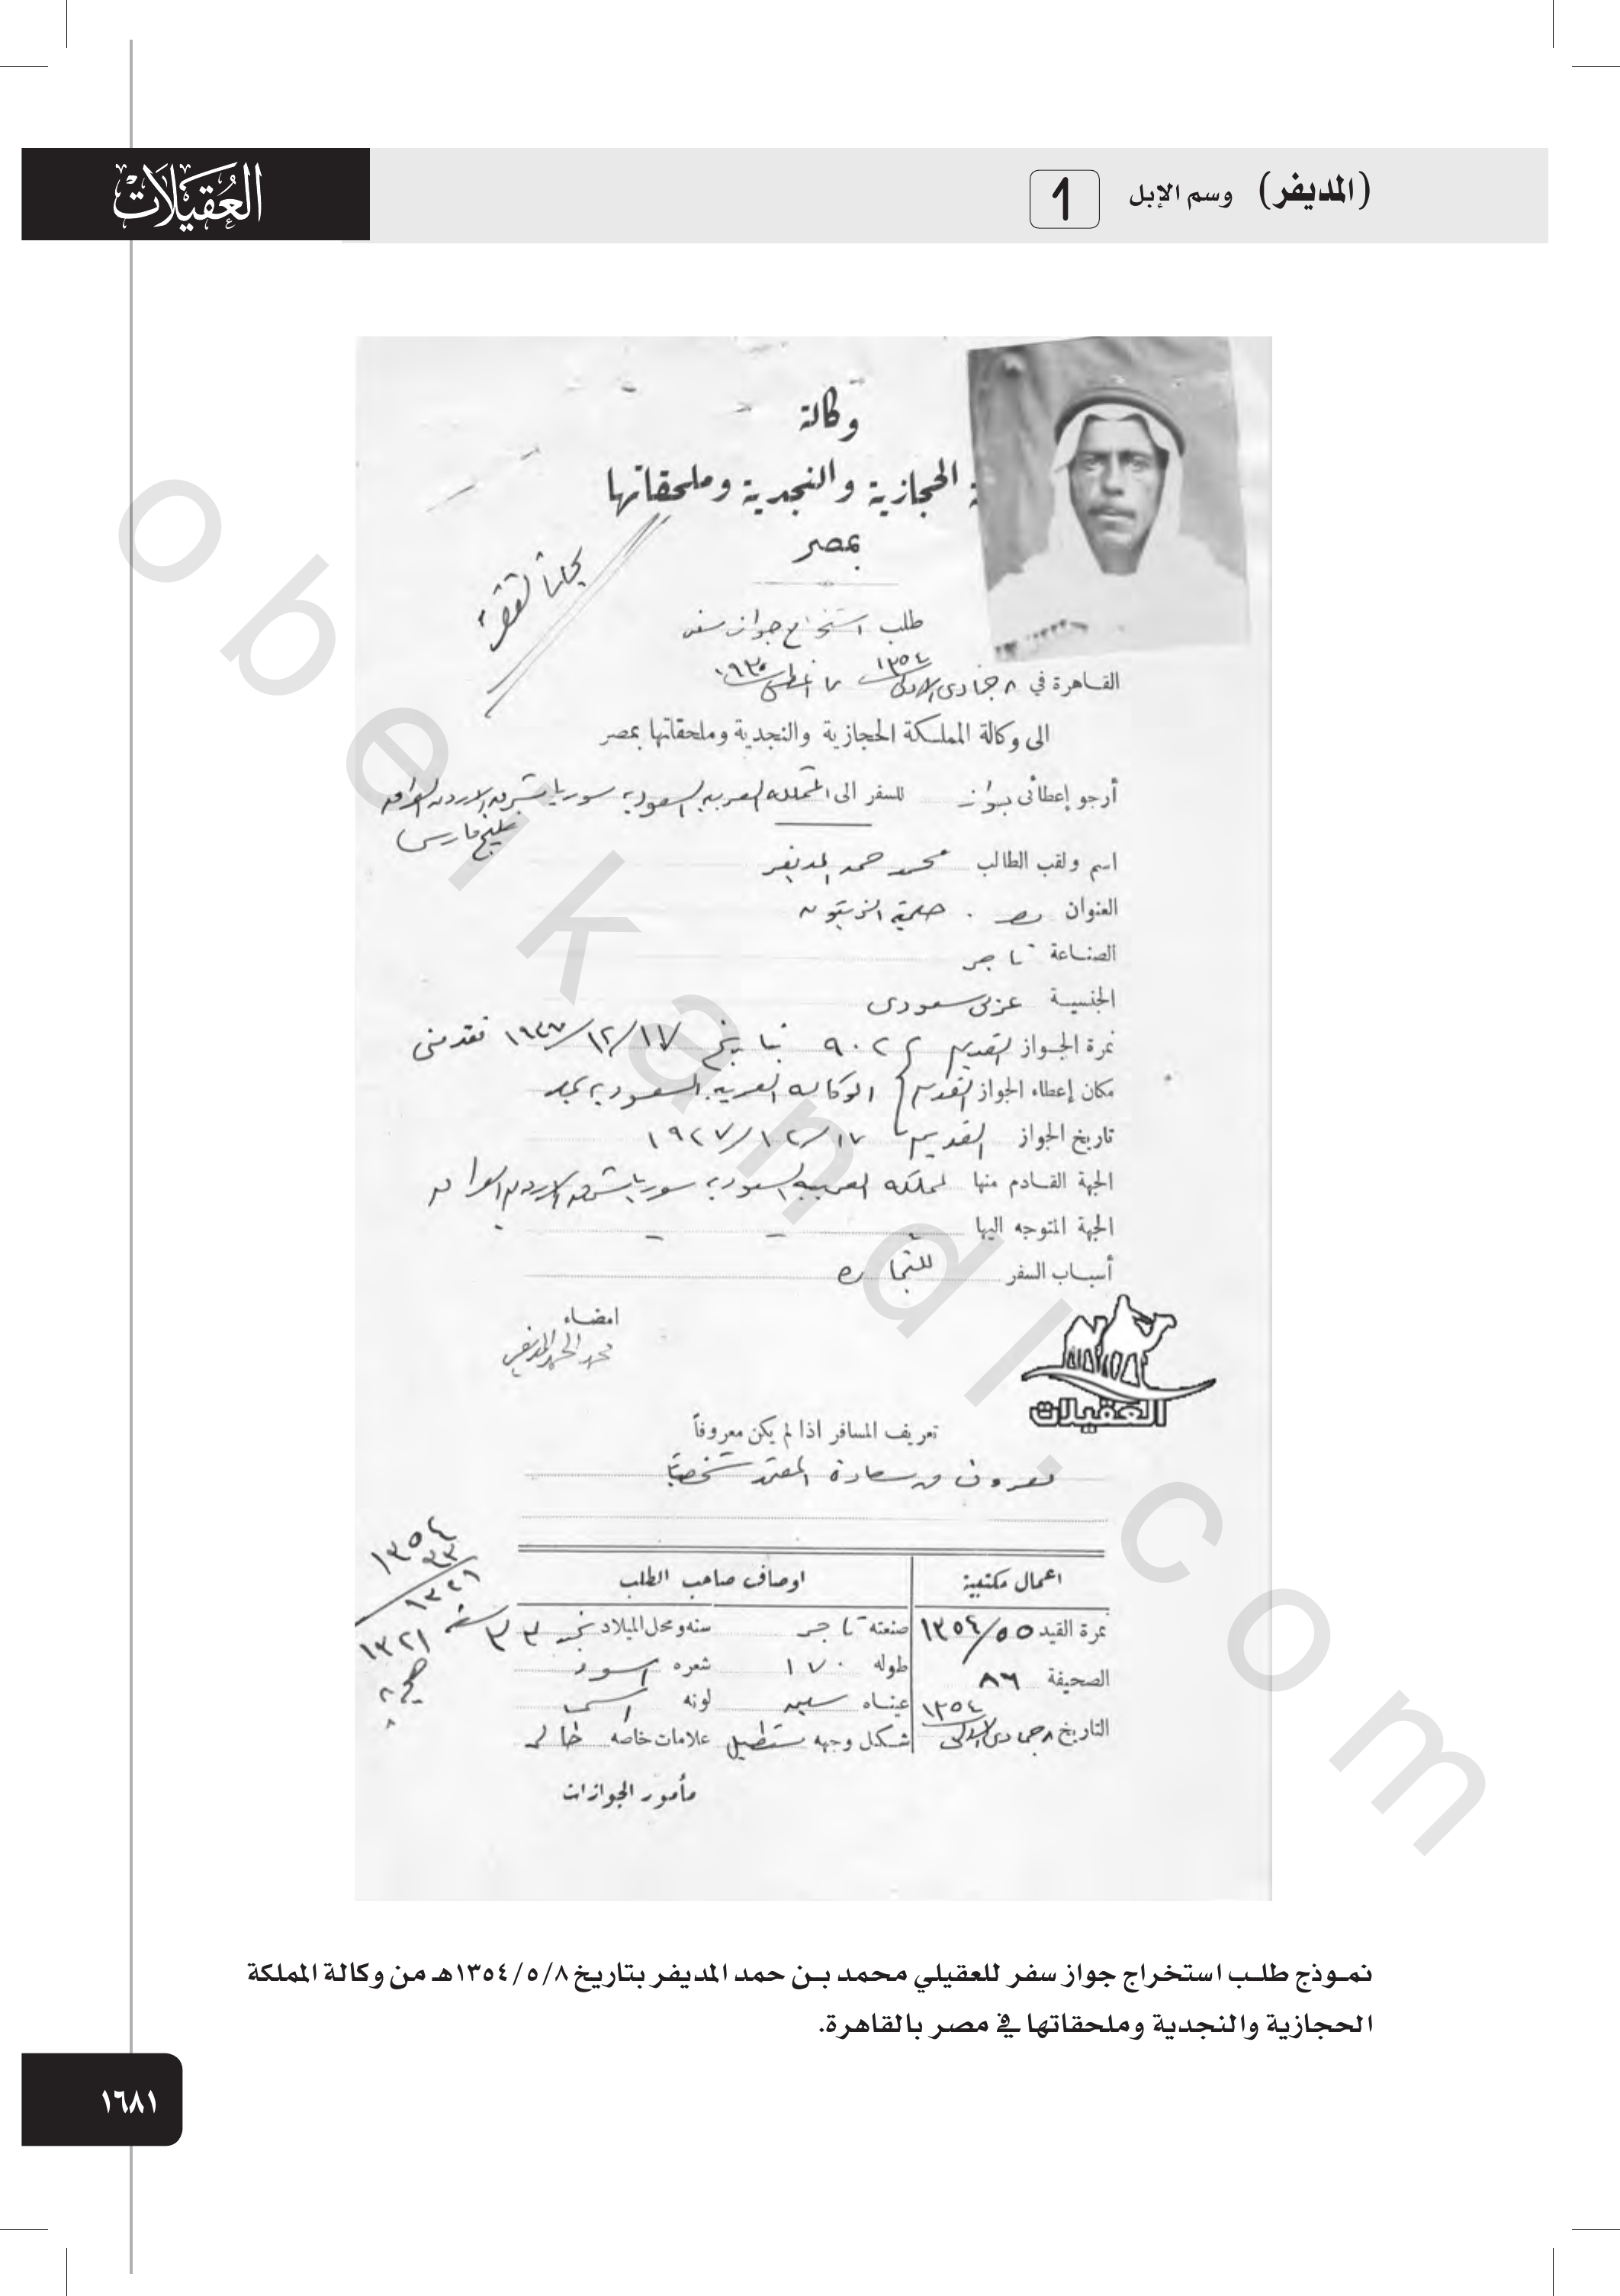 العقيلات
(المديفر) وسم الإبل
وكالة
الحجازية والنجدية وملحقاتها
بمصر
مجاناً لفقره
طلب استخراج جواز سفر
القاهرة في ٨ جمادى الاولى ١٣٥٤ ٧ اغسطس
الى وكالة المملكة الحجازية والنجدية وملحقاتها بمصر
أرجو إعطائى جواز للسفر الى المملكه العربيه السعوديه سوريا شرق الاردن العراق
خليج فارس
اسم ولقب الطالب محمد حمد المديفر
العنوان مصر . حلمية الزيتون
الصناعة تاجر
الجنسية عربى سعودى
نمرة الجواز القديم ٩٠٢٢ بتاريخ ١٧/١٢/١٩٢٧ فقد منى
مكان إعطاء الجواز القديم الوكاله العربيه السعوديه بمصر
تاريخ الجواز القديم ١٧/١٢/١٩٢٧
الجهة القادم منها المملكه العربيه السعوديه سوريا شرق الاردن العراق
الجهة المتوجه اليها
أسباب السفر للتجاره
امضاء
محمد الحمد المديفر
العقيلات
تعريف المسافر اذا لم يكن معروفاً
معروف من سعادة المعتمد شخصياً
اعمال مكتبية
اوصاف صاحب الطلب
١٣٥٤
٣٣
١٣٢١
نمرة القيد ٥٥/١٣٥٤ صنعته تاجر سنه ومحل الميلاد نجد ٣٣ سنه ١٣٢١
الصحيفة ٨٦ طوله ١٧٠ شعره اسود
التاريخ ٨ جمادى الاولى ١٣٥٤ عيناه لونه اسمر
شكل وجهه مستطيل علامات خاصه
مأمور الجوازات
نموذج طلب استخراج جواز سفر للعقيلي محمد بن حمد المديفر بتاريخ ١٣٥٤/٥/٨هـ من وكالة المملكة
الحجازية والنجدية وملحقاتها في مصر بالقاهرة.
١٦٨١
obeikandl.com